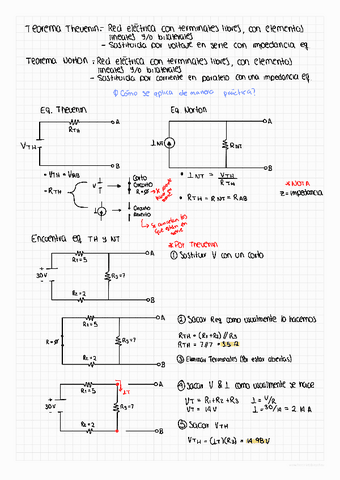 Teorema Thevenin:- Red eléctrica con terminales libres, con elementos
lineales y/o bilaterales
- Sustituida por voltaje en serie con impedancia eq.
Teorema Norton:- Red eléctrica con terminales libres, con elementos
lineales y/o bilaterales
- Sustituida por corriente en paralelo con una impedancia eq.
¿Cómo se aplica de manera práctica?
Eq. Thevenin
Eq Norton
A
RTH
VTH
B
A
INT
RNT
B
• VTH = VAB
• RTH
V
Corto
Circuito
R=Ø
I
Circuito
Abierto
• INT = VTH
RTH
• RTH = RNT = RAB
*NOTA
z = impedancia
Encuentra eq TH y NT
*Por Thevenin
① Sustituir V con un corto
A
R1=5
30V
R3=7
R2=2
B
② Sacar Req como usualmente lo hacemos
RTH = (R1+R2) // R3
RTH = 7//7 = 3.5 Ω
③ Eliminar Terminales (Por estar abiertas)
A
R1=5
R=Ø
R3=7
R2=2
B
④ Sacar V & I como usualmente se hace
VT = R1+R2+R3
I = V/R
VT = 14 V
I = 30/14 = 2.14 A
⑤ Sacar VTH
VTH = (IT)(R3) = 14.98 V
A
R1=5
IT
30V
R3=7
R2=2
B